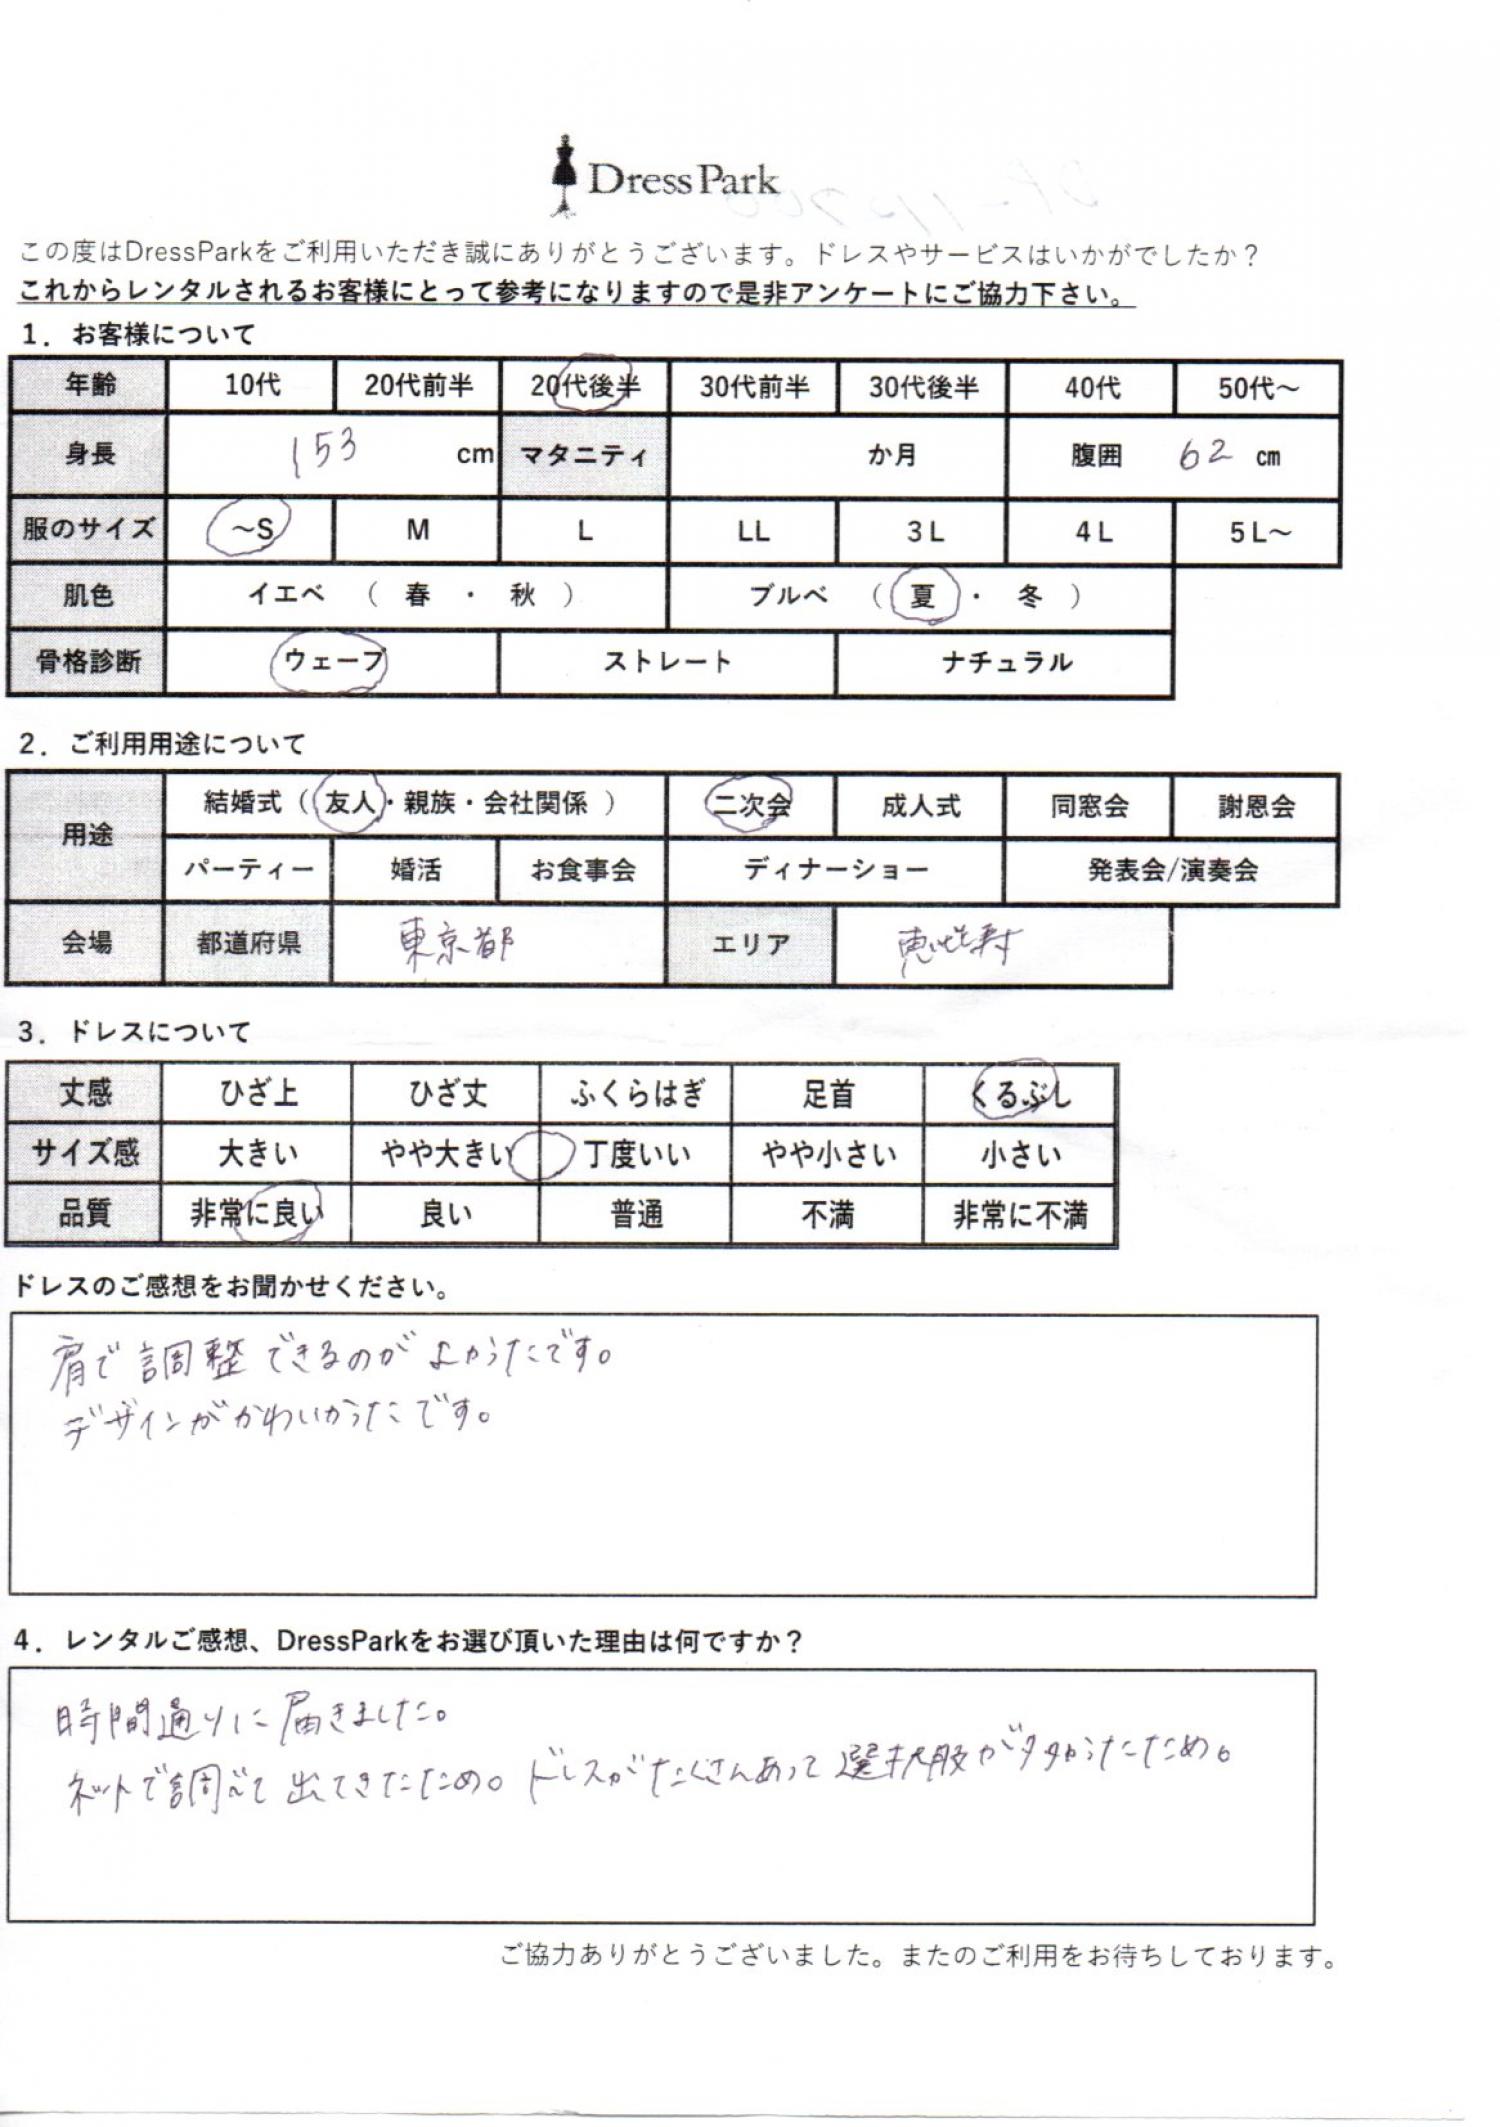 DressPark
この度はDressParkをご利用いただき誠にありがとうございます。ドレスやサービスはいかがでしたか？
これからレンタルされるお客様にとって参考になりますので是非アンケートにご協力下さい。
1．お客様について
年齢 10代 20代前半 20代後半 30代前半 30代後半 40代 50代～
身長 153 cm マタニティ か月 腹囲 62 cm
服のサイズ ～S M L LL 3L 4L 5L～
肌色 イエベ （ 春 ・ 秋 ） ブルベ （ 夏 ・ 冬 ）
骨格診断 ウェーブ ストレート ナチュラル
2．ご利用用途について
用途 結婚式（ 友人・親族・会社関係 ） 二次会 成人式 同窓会 謝恩会
パーティー 婚活 お食事会 ディナーショー 発表会/演奏会
会場 都道府県 東京都 エリア 恵比寿
3．ドレスについて
丈感 ひざ上 ひざ丈 ふくらはぎ 足首 くるぶし
サイズ感 大きい やや大きい 丁度いい やや小さい 小さい
品質 非常に良い 良い 普通 不満 非常に不満
ドレスのご感想をお聞かせください。
肩で調整できるのがよかったです。
デザインがかわいかったです。
4．レンタルご感想、DressParkをお選び頂いた理由は何ですか？
時間通りに届きました。
ネットで調べて出てきたため。ドレスがたくさんあって選択肢が多かったため。
ご協力ありがとうございました。またのご利用をお待ちしております。